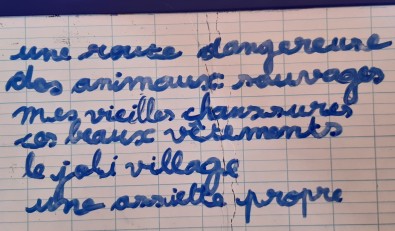 une route dangereuse
des animaux sauvages
mes vieilles chaussures
ces beaux vêtements
le joli village
une assiette propre